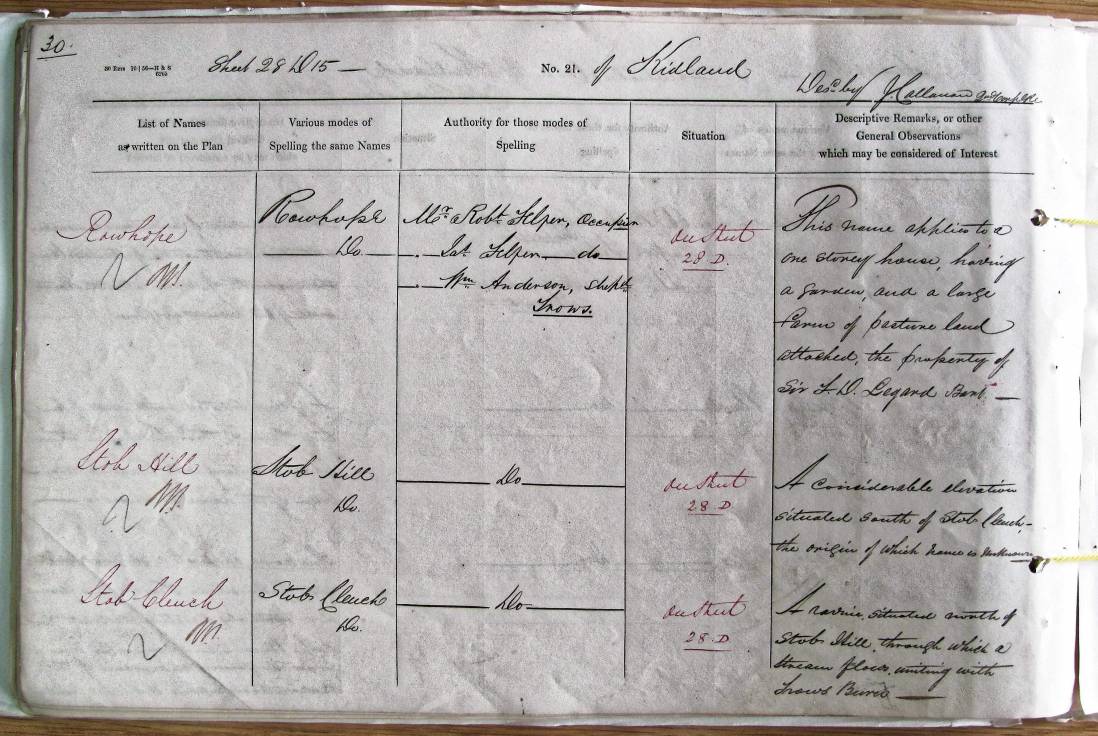 30.
Sheet 28 D 15 — No. 21. of Kidland
Desd by J. Callanan
List of Names
as written on the Plan
Various modes of
Spelling the same Names
Authority for those modes of
Spelling
Situation
Descriptive Remarks, or other
General Observations
which may be considered of Interest
Rowhope
Rowhope
Do.
Mr. Robt. Telfer, Occupier
Jas. Telfer do
Wm. Anderson, Shepd.
Trows.
on Sheet
28 D.
This name applies to a
one storey house, having
a garden, and a large
Farm of pasture land
attached, the property of
Sir F. D. Legard Bart. —
Stob Hill
Stob Hill
Do.
Do
on Sheet
28 D
A considerable elevation
situated south of Stob Cleuch,
the origin of which name is unknown
Stob Cleuch
Stobs Cleuch
Do.
Do
on Sheet
28 D
A ravine, situated north of
Stobs Hill, through which a
stream flows, uniting with
Trows Burn —